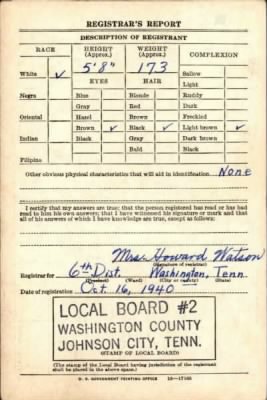 REGISTRAR'S REPORT
DESCRIPTION OF REGISTRANT
RACE HEIGHT (Approx.) WEIGHT (Approx.) COMPLEXION
White ✓ 5'8" 173 Sallow
EYES HAIR Light
Negro Blue Blonde Ruddy
Gray Red Dark
Oriental Hazel Brown Freckled
Brown ✓ Black ✓ Light brown ✓
Indian Black Gray Dark brown
Bald Black
Filipino
Other obvious physical characteristics that will aid in identification None
I certify that my answers are true; that the person registered has read or has had read to him his own answers; that I have witnessed his signature or mark and that all of his answers of which I have knowledge are true, except as follows:
Mrs. Howard Watson
(Signature of registrar)
Registrar for 6th Dist. Washington, Tenn.
(Precinct) (Ward) (City or county) (State)
Date of registration Oct. 16, 1940
LOCAL BOARD #2
WASHINGTON COUNTY
JOHNSON CITY, TENN.
(STAMP OF LOCAL BOARD)
(The stamp of the Local Board having jurisdiction of the registrant shall be placed in the above space.)
U. S. GOVERNMENT PRINTING OFFICE